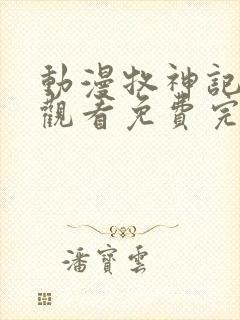 動漫牧神記
觀看免費完
潘寶雲